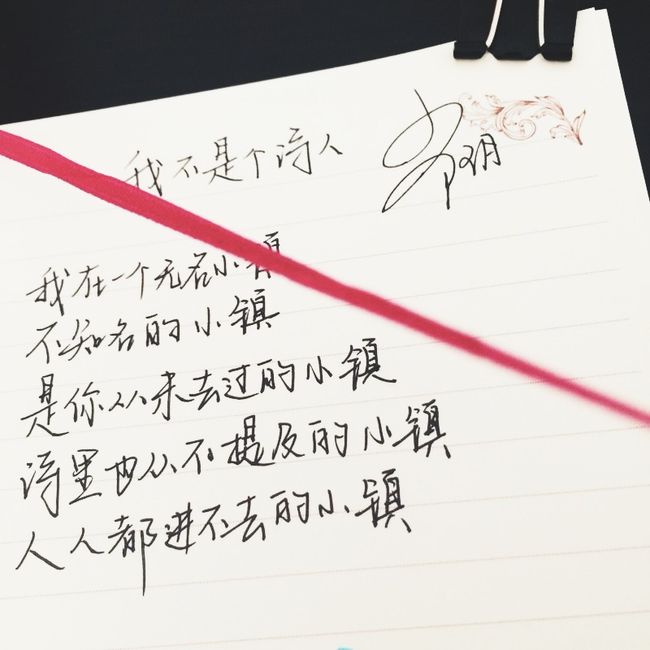 我不是个诗人
我在一个无名小镇
不知名的小镇
是你从未去过的小镇
诗里也从不提及的小镇
人人都进不去的小镇